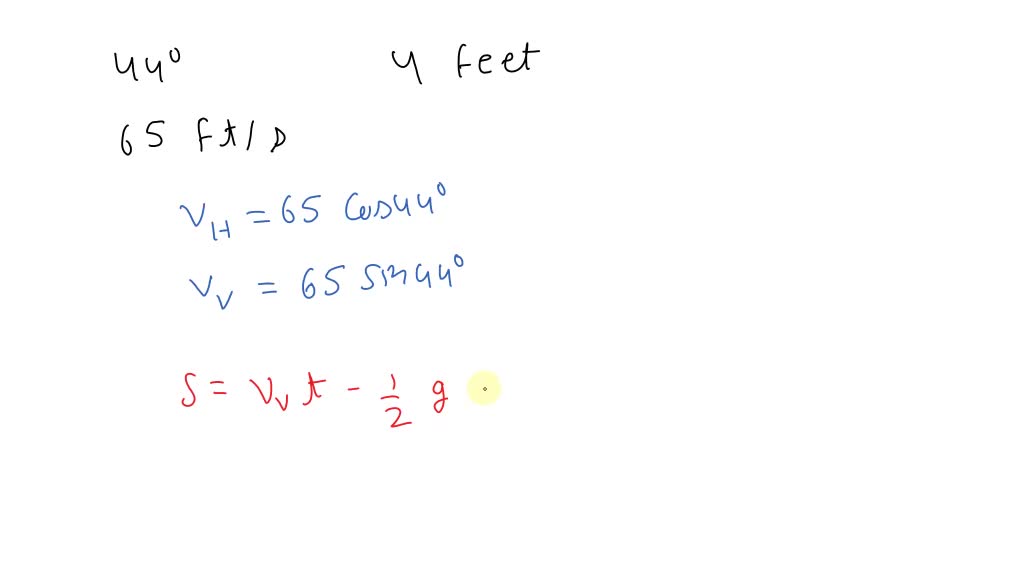 44° 4 feet
65 ft/s
V_H = 65 cos44°
V_V = 65 sin44°
S = V_V t - 1/2 g